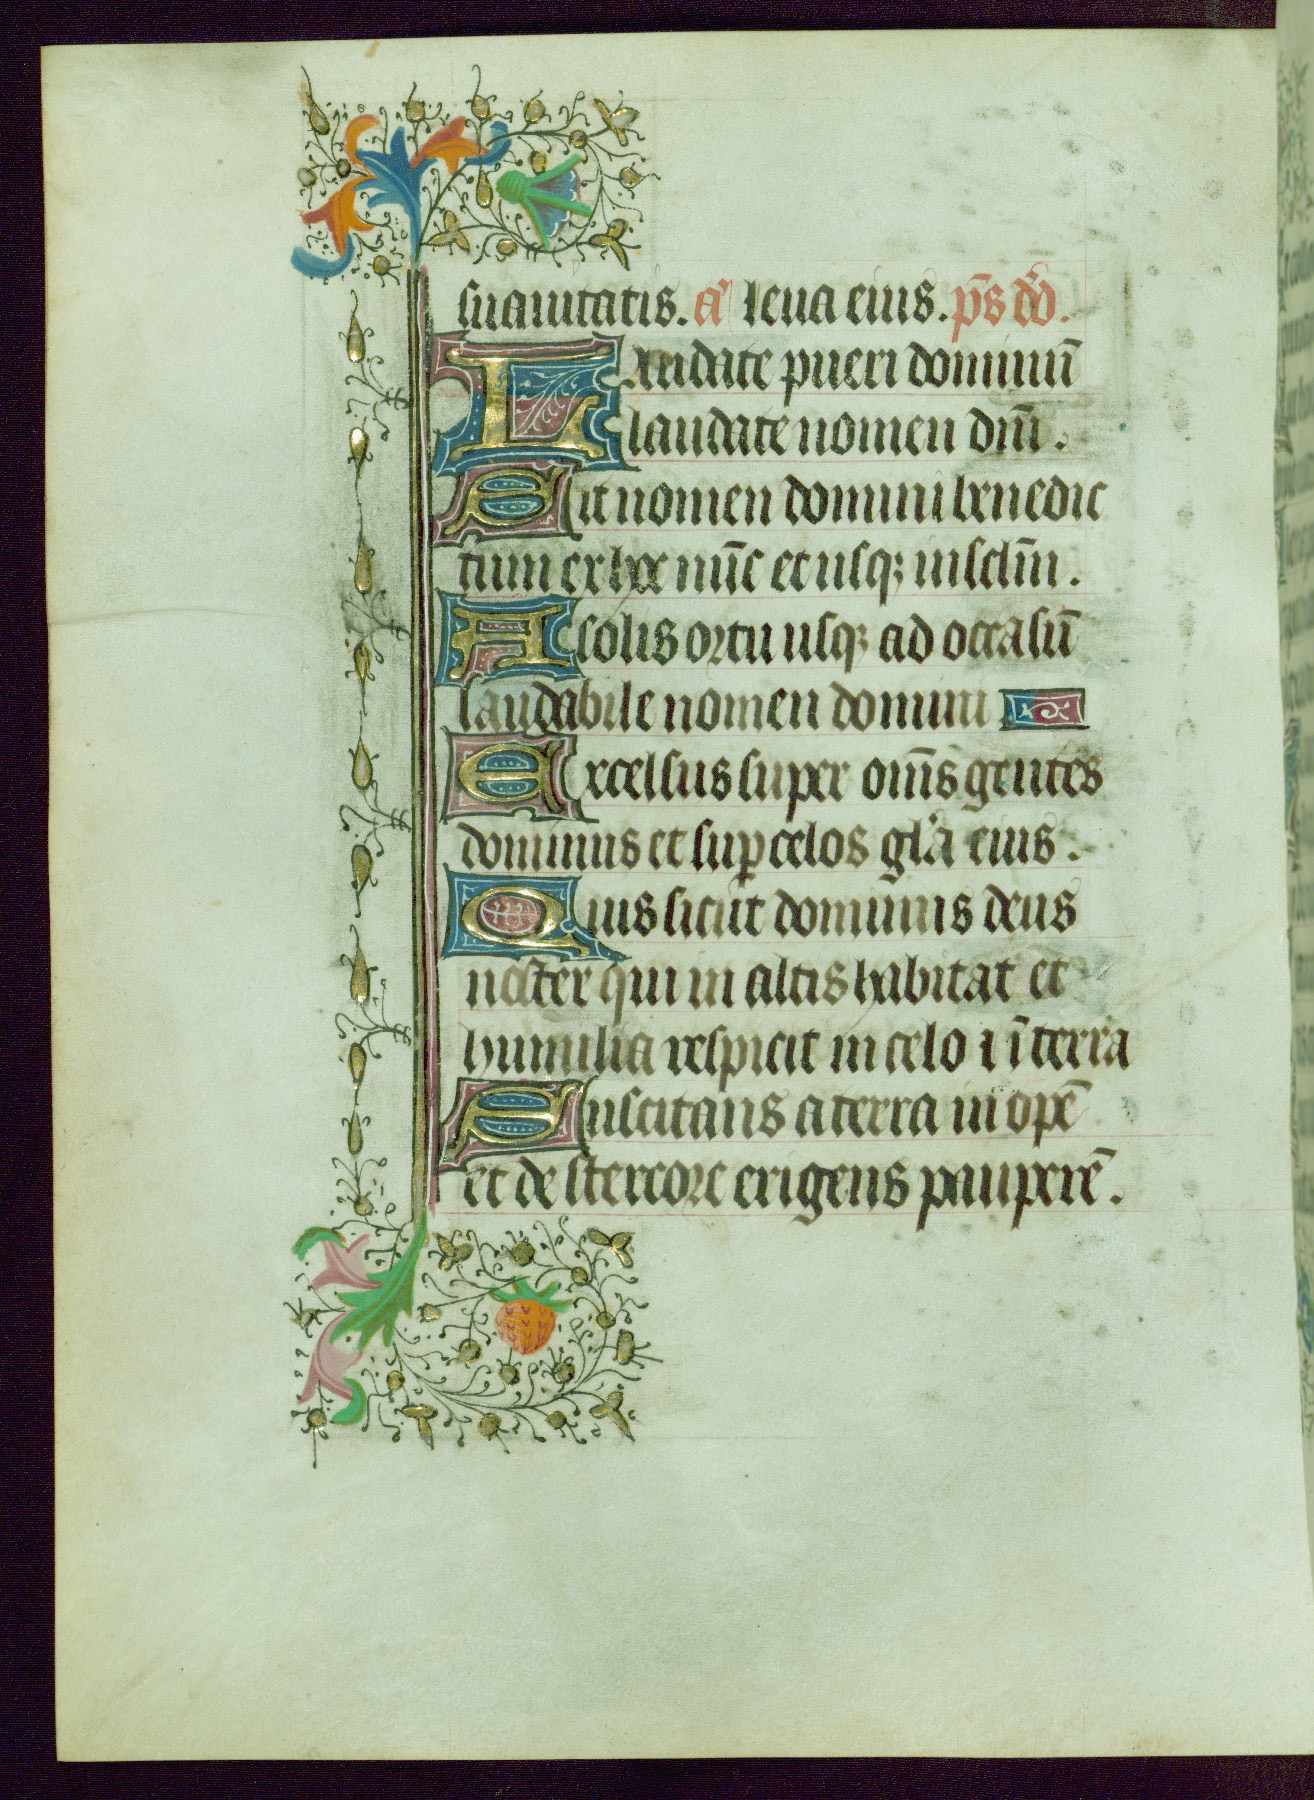 suauitatis. a᷒ leua eius. p̄s dd̄.
Laudate pueri dominū
laudate nomen dn̄i.
Sit nomen domini benedic
tum ex hoc nūc et usqꝫ in sclm̄.
A solis ortu usqꝫ ad occasū
laudabile nomen domini
Excelsus super om̄s gentes
dominus et suꝑ celos gl'a eius.
Quis sicut dominus deus
noster qui in altis habitat et
humilia respicit in celo ⁊ ī terra
Suscitans a terra inopē
et de stercore erigens pauperē.